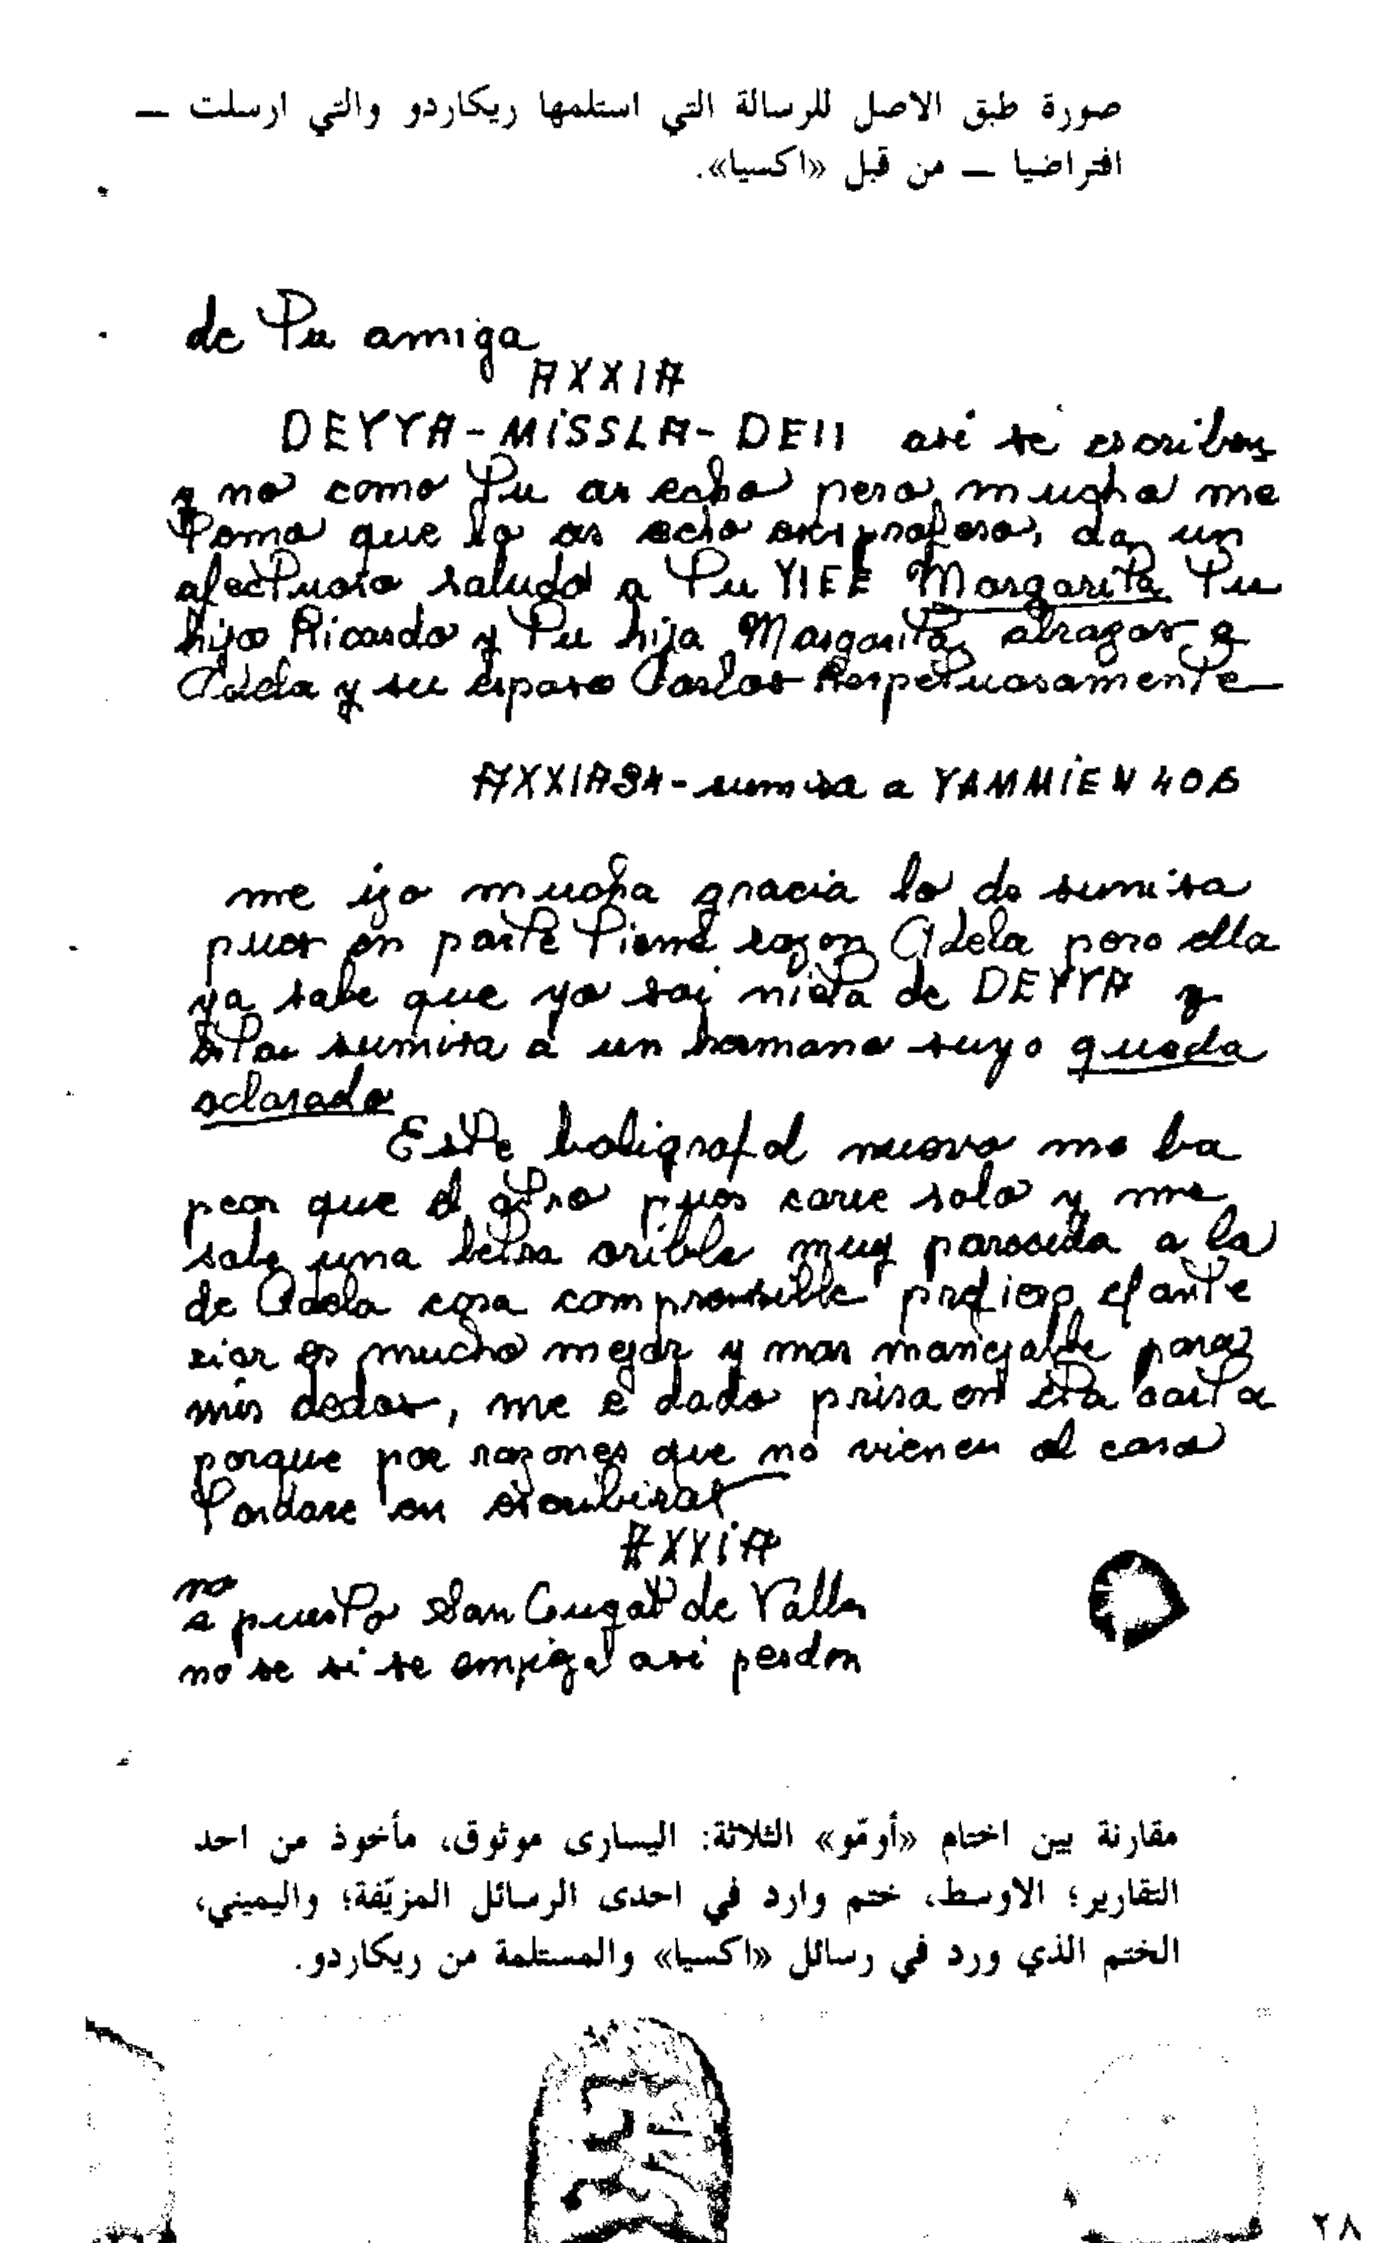 صورة طبق الاصل للرسالة التي استلمها ريكاردو والتي ارسلت —
افتراضيا — من قبل «اكسيا».
de tu amiga
AXXIA
DEYYA-MiSSLA-DEII asi se escribes
y no como tu as echo pero mucho me
tomo que lo as echo da un
afectuoso saludo a tu YIEE Margarita tu
hijo Ricardo y tu hija Margarita abrazos a
Adela y su esposo Carlos Respetuosamente
AXXIA - sumisa a YAMMiEN 406
me izo mucha gracia lo de sumisa
pues en parte tiene razon Adela pero ella
ya sabe que yo soi nieta de DEYYA y
sumisa a un hermano suyo queda
aclarado
Este boligrafo nuevo me ba
peor que el otro pues corre solo y me
sale una letra orible muy parecida a la
de Adela cosa comprensible prefiero el ante
rior es mucho mejor y mas manejable para
mis dedos, me e dado prisa en esta carta
porque por razones que no vienen al caso
tardare en escribiros
AXXiA
no
e puesto San Cugat de Valles
no se si se empiza asi perdon
مقارنة بين اختام «أومّو» الثلاثة: اليسارى موثوق، مأخوذ من احد
التقارير؛ الاوسط، ختم وارد في احدى الرسائل المزيّفة؛ واليميني،
الختم الذي ورد في رسائل «اكسيا» والمستلمة من ريكاردو.
٢٨